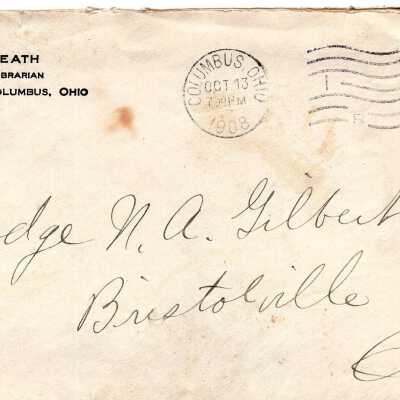 EATH
BRARIAN
OLUMBUS, OHIO
COLUMBUS, OHIO
OCT 13
7 PM
1908
odge N. A. Gilbert
Bristolville
O